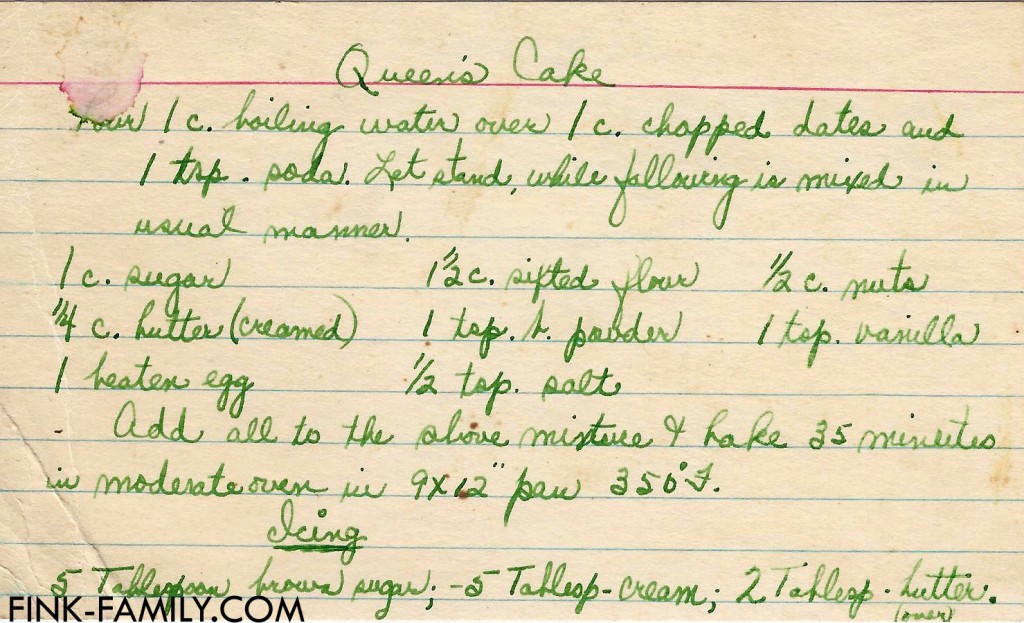 Queen's Cake
Pour 1 c. boiling water over 1 c. chopped dates and
1 tsp. soda. Let stand, while following is mixed in
usual manner.
1 c. sugar 1 1/2 c. sifted flour 1/2 c. nuts
1/4 c. butter (creamed) 1 tsp. b. powder 1 tsp. vanilla
1 beaten egg 1/2 tsp. salt
Add all to the above mixture & bake 35 minutes
in moderate oven in 9x12" pan 350°F.
Icing
5 Tablespoon brown sugar; -5 Tablesp-cream; 2 Tablesp. butter.
(over)
FINK-FAMILY.COM